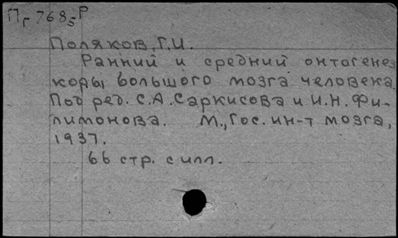 Пг 7685 Р
Поляков, Г.И.
Ранний и средний онтогенез
коры большого мозга человека.
Под ред. С.А. Саркисова и И.Н. Фи-
лимонова. М., Гос. ин-т мозга,
1937.
66 стр. с илл.